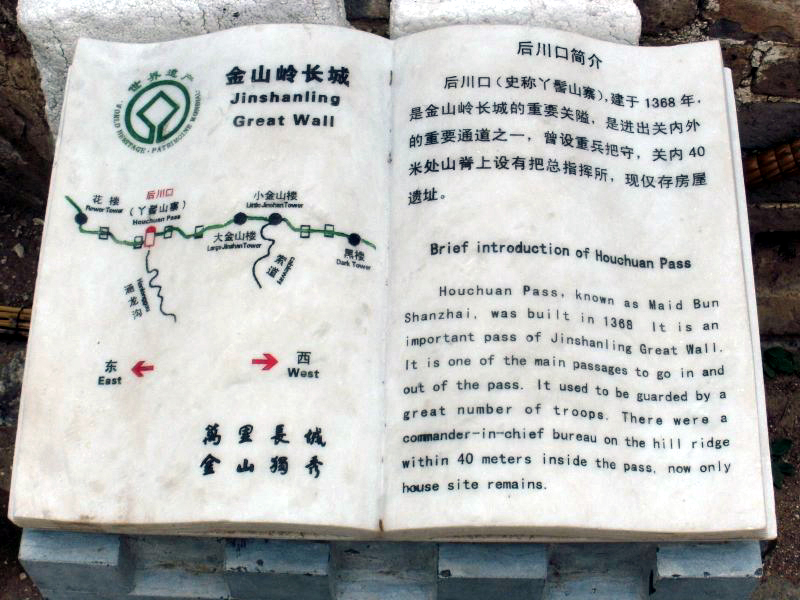 世界遗产
WORLD HERITAGE · PATRIMOINE MONDIAL
金山岭长城
Jinshanling
Great Wall
花楼
Flower Tower
后川口
(丫髻山寨)
Houchuan Pass
小金山楼
Little Jinshan Tower
大金山楼
Large Jinshan Tower
黑楼
Dark Tower
索道
Cableway
涌龙沟
东
East
西
West
萬里長城
金山獨秀
后川口简介
后川口(史称丫髻山寨),建于1368年,
是金山岭长城的重要关隘,是进出关内外
的重要通道之一,曾设重兵把守,关内40
米处山脊上设有把总指挥所,现仅存房屋
遗址。
Brief introduction of Houchuan Pass
Houchuan Pass, known as Maid Bun
Shanzhai, was built in 1368 It is an
important pass of Jinshanling Great Wall.
It is one of the main passages to go in and
out of the pass. It used to be guarded by a
great number of troops. There were a
commander-in-chief bureau on the hill ridge
within 40 meters inside the pass, now only
house site remains.